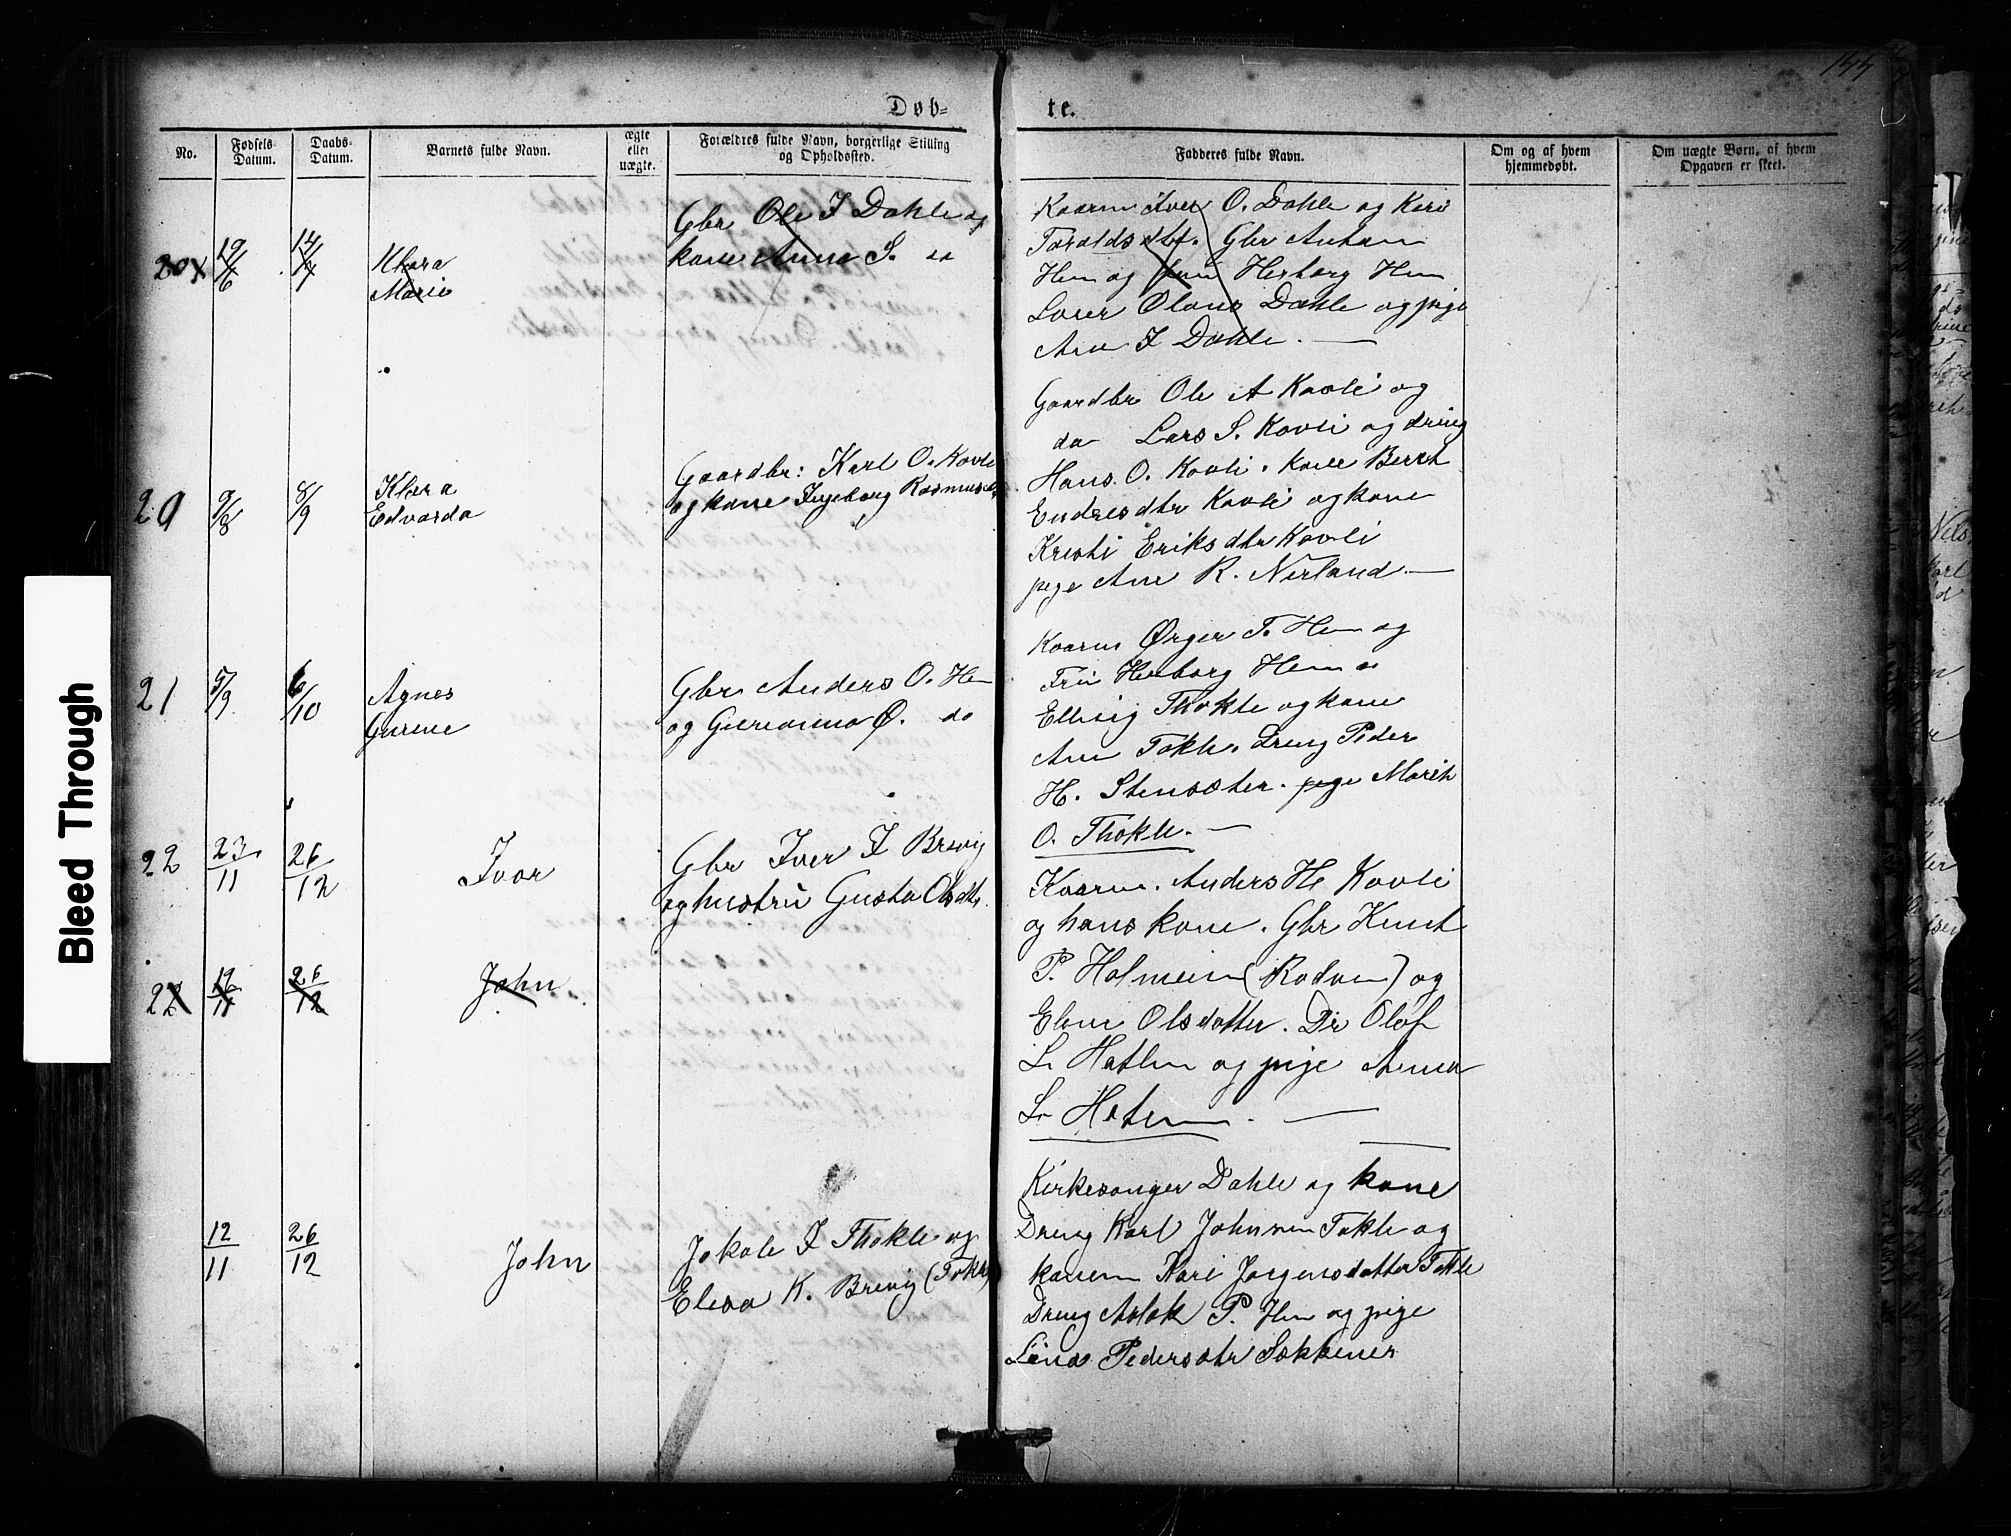 144
Døb-
te.
No.
Fødsels
Datum.
Daabs-
Datum.
Barnets fulde Navn.
ægte
eller
uægte.
Forældres fulde Navn, borgerlige Stilling
og Opholdssted.
Faddernes fulde Navn.
Om og af hvem
hjemmedøbt.
Om uægte Børn, af hvem
Opgaven er skeet.
20
19/6
14/7
Klara
Marie
Gbr Ole I Dahle og
kone Anne S. do
Kaarm Iver O. Dahle og Kari
Taraldsdtr. Gbr Antom
Hem og fru Herborg Hem
Lærer Olaus Dahle og pige
Ane I Dahle.
20
9/8
8/9
Klara
Edvarda
Gaardbr: Karl O. Kavli
og kone Ingeborg Rasmusdtr
Gaardbr Ole A Kavli og
do Lars S. Kavli og dreng
Hans O. Kavli. kone Bereth
Endresdtr Kavli og kone
Kristi Eriksdtr Kavli
pige Ane R. Nerland.
21
5/9
6/10
Agnes
Gurine
Gbr Anders O. Hem
og Gurianna Ø. do
Kaarm Ørger T. Hem og
Fru Herborg Hem
Elling Thokle og kone
Ane Tokle. Dreng Peder
H. Stensæter. pige Marith
O. Thokle.
22
23/11
26/12
Ivar
Gbr Iver I Brevig
og hustru Gusta Olsdtr.
Kaarm. Anders H Kavli
og hans kone. Gbr Knut
P. Holmeim (Rødven) og
Elene Olsdotter. Dr Olof
L. Hatlen og pige Anna
L. Hatlen.
22
12/11
26/12
John
12/11
26/12
John
Jakob I Thokle og
Elesa K. Brevig (Tokle)
Kirkesanger Dahle og kone
Dreng Karl Johnsen Tokle og
konen Kari Jørgensdatter Tokle
Dreng Aslak P. Hem og pige
Lina Pedersdtr Sekkenes
Bleed Through